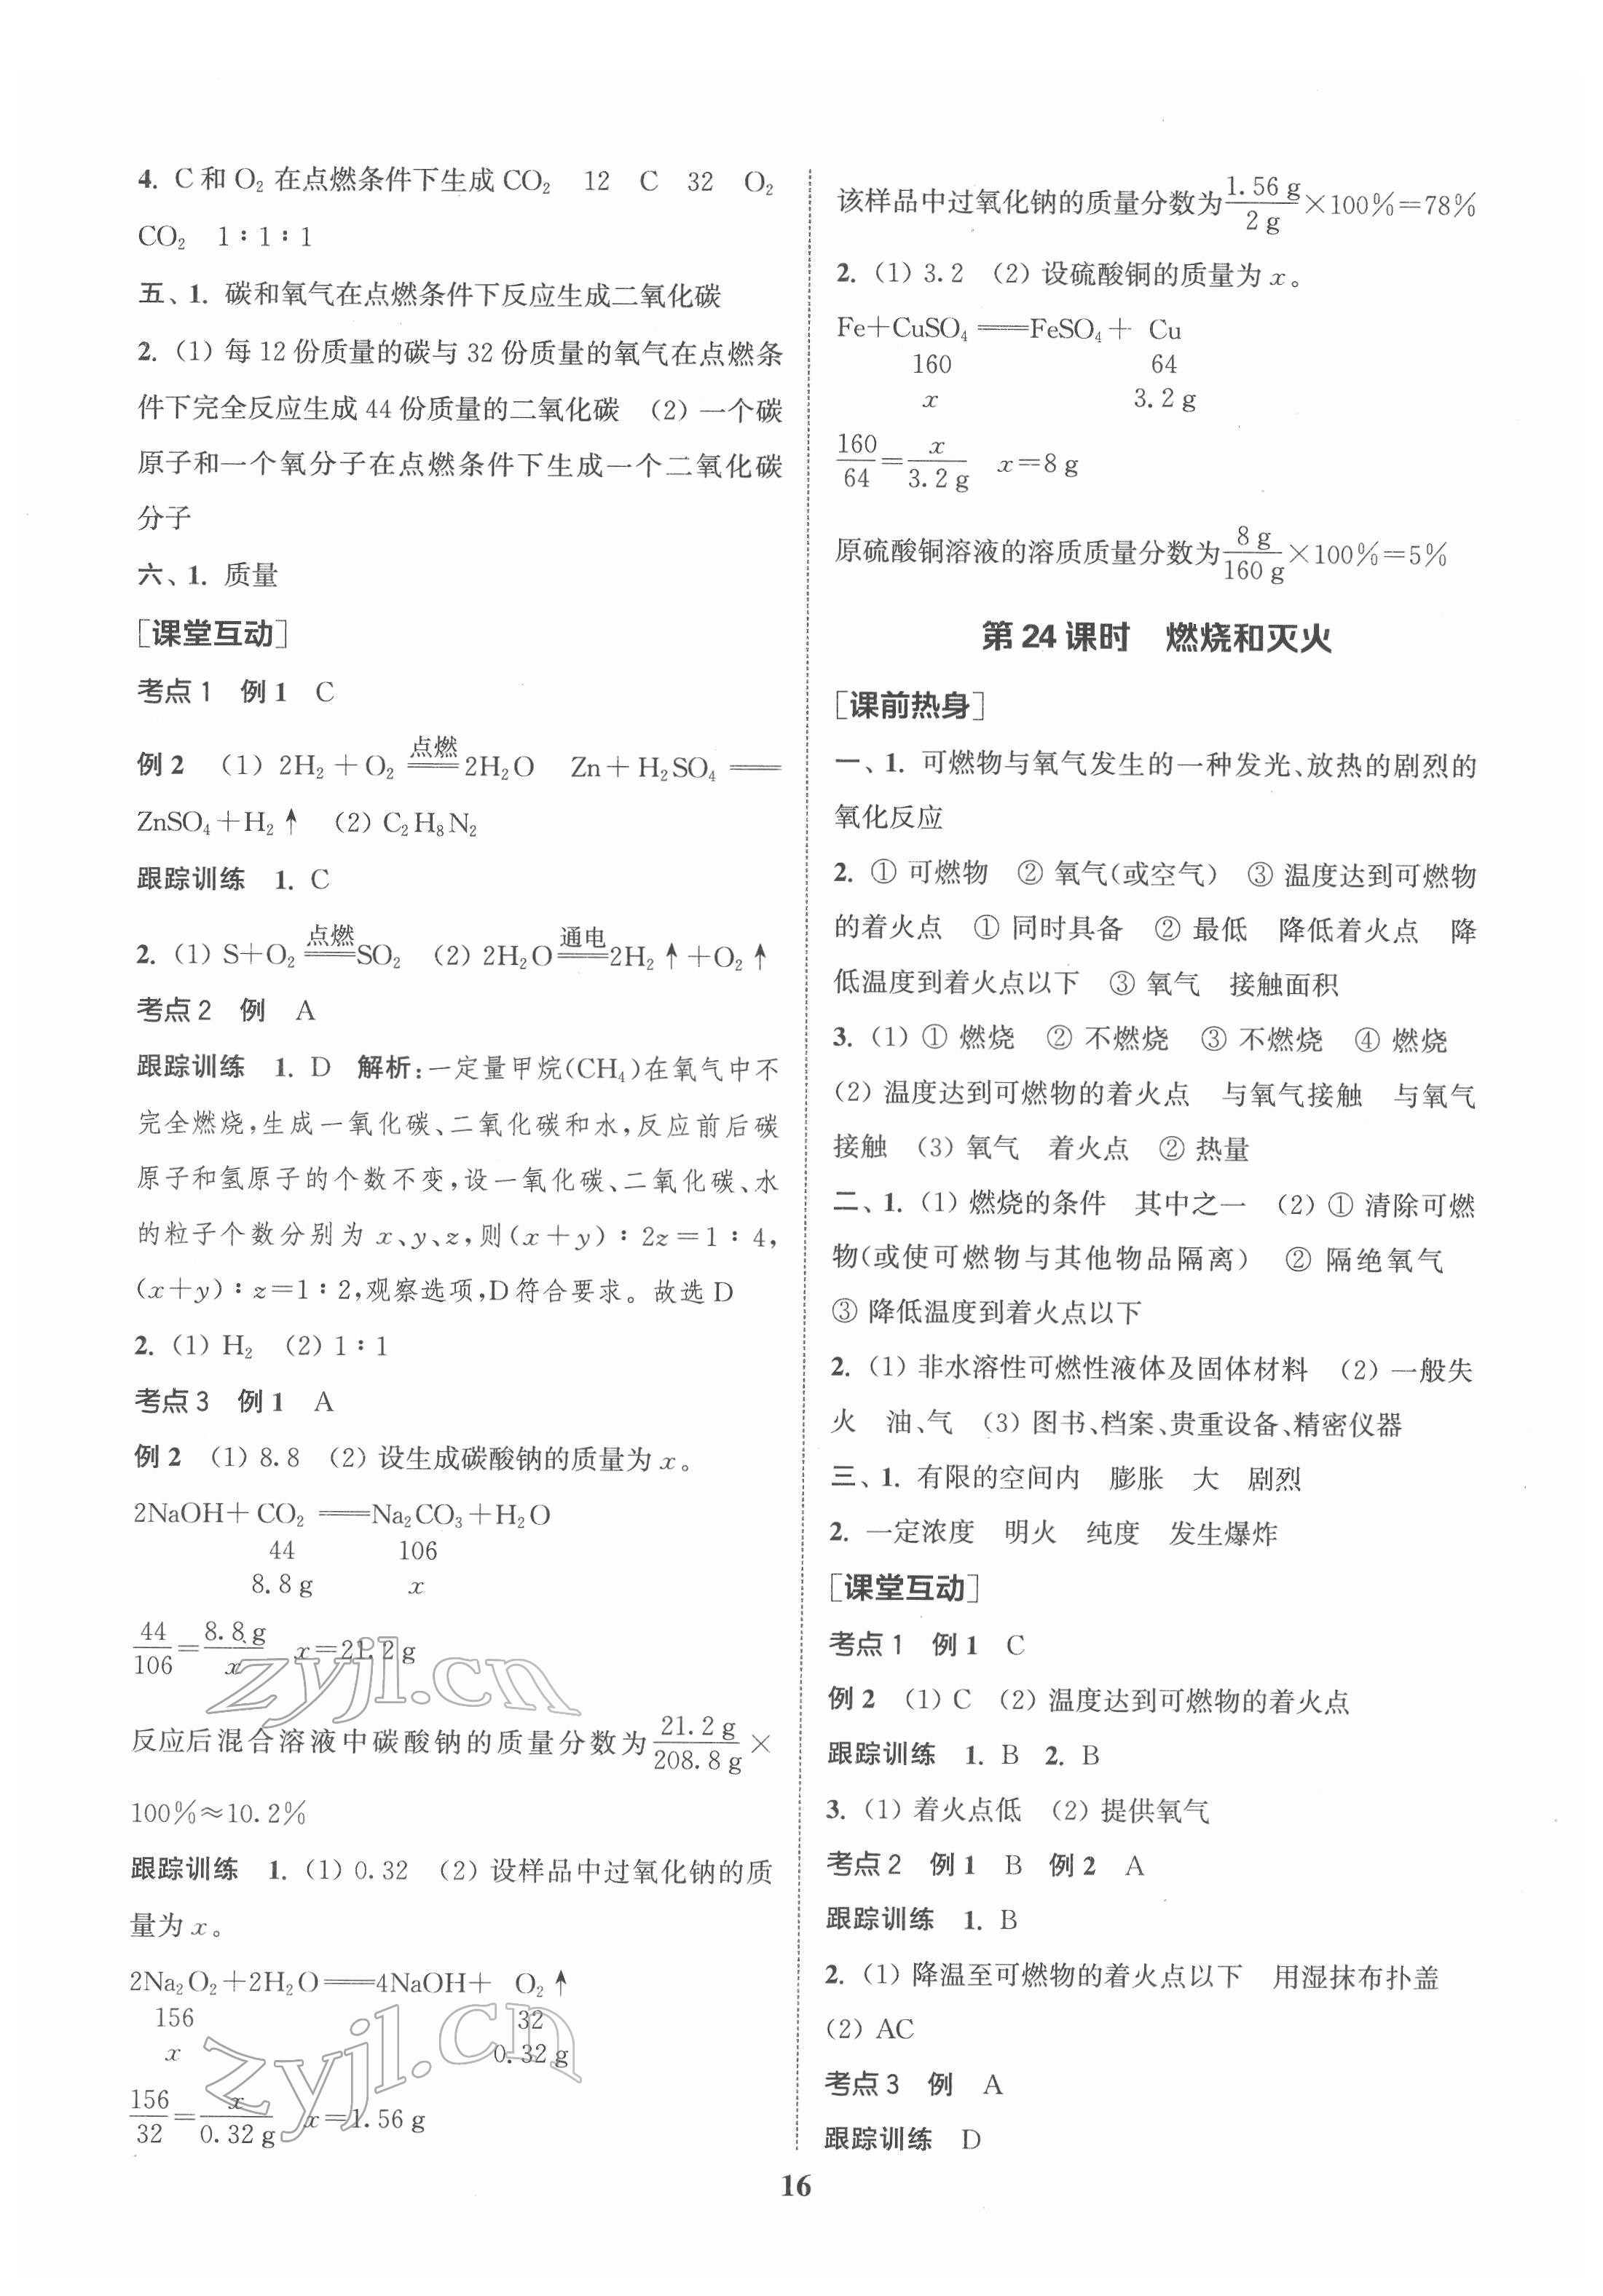 4. C 和 O₂ 在点燃条件下生成 CO₂ 12 C 32 O₂
CO₂ 1∶1∶1
五、1. 碳和氧气在点燃条件下反应生成二氧化碳
2. (1) 每 12 份质量的碳与 32 份质量的氧气在点燃条
件下完全反应生成 44 份质量的二氧化碳 (2) 一个碳
原子和一个氧分子在点燃条件下生成一个二氧化碳
分子
六、1. 质量
[课堂互动]
考点 1 例 1 C
例 2 (1) 2H₂ + O₂ ══点燃══ 2H₂O Zn + H₂SO₄ ══
ZnSO₄ + H₂↑ (2) C₂H₈N₂
跟踪训练 1. C
2. (1) S+O₂ ══点燃══ SO₂ (2) 2H₂O ══通电══ 2H₂↑+O₂↑
考点 2 例 A
跟踪训练 1. D 解析:一定量甲烷(CH₄)在氧气中不
完全燃烧,生成一氧化碳、二氧化碳和水,反应前后碳
原子和氢原子的个数不变,设一氧化碳、二氧化碳、水
的粒子个数分别为 x、y、z,则(x+y)∶2z=1∶4,
(x+y)∶z=1∶2,观察选项,D符合要求。故选 D
2. (1) H₂ (2) 1∶1
考点 3 例 1 A
例 2 (1) 8.8 (2) 设生成碳酸钠的质量为 x。
2NaOH+ CO₂ ══Na₂CO₃+H₂O
44 106
8.8 g x
44/106 = 8.8 g/x x=21.2 g
反应后混合溶液中碳酸钠的质量分数为 21.2 g/208.8 g ×
100%≈10.2%
跟踪训练 1. (1) 0.32 (2) 设样品中过氧化钠的质
量为 x。
2Na₂O₂+2H₂O══4NaOH+ O₂↑
156 32
x 0.32 g
156/32 = x/0.32 g x=1.56 g
该样品中过氧化钠的质量分数为 1.56 g/2 g ×100%=78%
2. (1) 3.2 (2) 设硫酸铜的质量为 x。
Fe+CuSO₄══FeSO₄+ Cu
160 64
x 3.2 g
160/64 = x/3.2 g x=8 g
原硫酸铜溶液的溶质质量分数为 8 g/160 g ×100%=5%
第 24 课时 燃烧和灭火
[课前热身]
一、1. 可燃物与氧气发生的一种发光、放热的剧烈的
氧化反应
2. ① 可燃物 ② 氧气(或空气) ③ 温度达到可燃物
的着火点 ① 同时具备 ② 最低 降低着火点 降
低温度到着火点以下 ③ 氧气 接触面积
3. (1) ① 燃烧 ② 不燃烧 ③ 不燃烧 ④ 燃烧
(2) 温度达到可燃物的着火点 与氧气接触 与氧气
接触 (3) 氧气 着火点 ② 热量
二、1. (1) 燃烧的条件 其中之一 (2) ① 清除可燃
物(或使可燃物与其他物品隔离) ② 隔绝氧气
③ 降低温度到着火点以下
2. (1) 非水溶性可燃性液体及固体材料 (2) 一般失
火 油、气 (3) 图书、档案、贵重设备、精密仪器
三、1. 有限的空间内 膨胀 大 剧烈
2. 一定浓度 明火 纯度 发生爆炸
[课堂互动]
考点 1 例 1 C
例 2 (1) C (2) 温度达到可燃物的着火点
跟踪训练 1. B 2. B
3. (1) 着火点低 (2) 提供氧气
考点 2 例 1 B 例 2 A
跟踪训练 1. B
2. (1) 降温至可燃物的着火点以下 用湿抹布扑盖
(2) AC
考点 3 例 A
跟踪训练 D
16
zyjl.cn
zyjl.cn